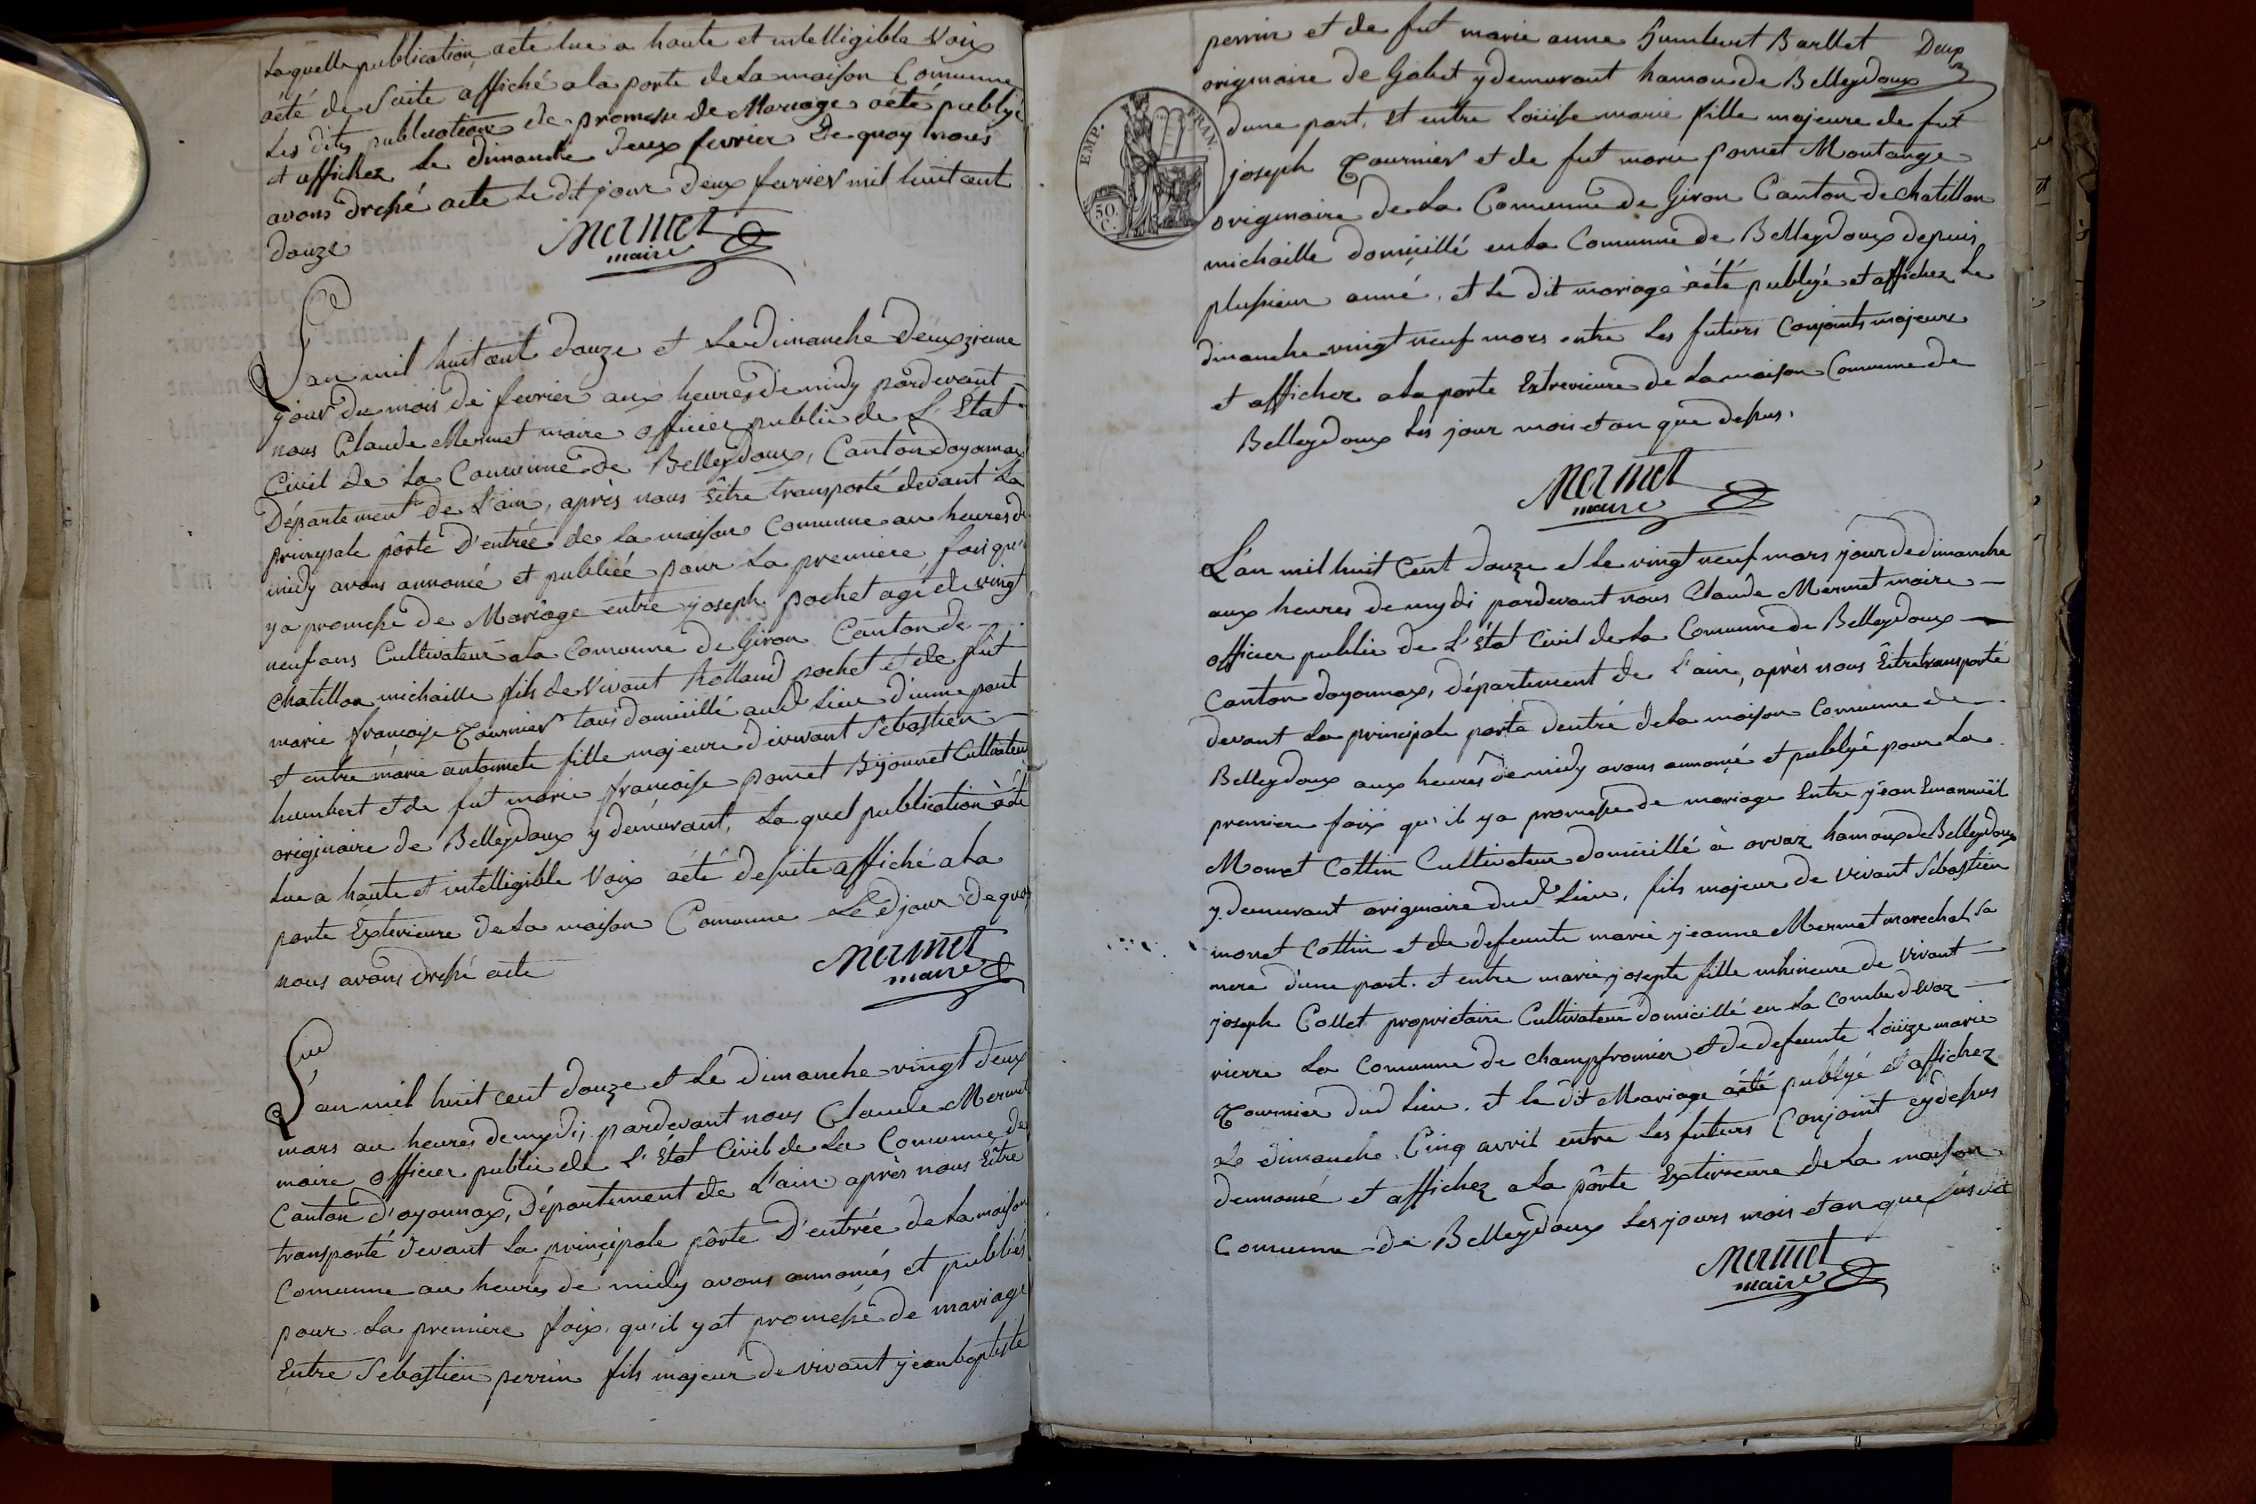 Laquelle publication acté lue a haute et intelligible Voix
aété de Suite affiché a la porte de la maison Comunne
Les dites publications de promesse de Mariage aété publyé
et affichez Le dimanche deux fevrier De quoy nous
avons dressé acte Le dit jour deux fevrier mil huit cent
douze
Mermet
maire
L'an mil huit cent douze et Le dimanche deuxzieme
jour du mois de fevrier aux heures de midy pardevant
nous Claude Mermet maire officier public de L'Etat
Civil de La Comunne de Belleydoux, Canton doyonnax
Département de L'ain, après nous Êitre transporté devant La
principale pôrte D'entrée de La maison Comunne au heures de
midy avons annoncé et publiée pour La premiere fois qu'il
y a promesse de Mariage entre joseph pochet agé de vingt
neuf ans Cultivateur a la Comunne de Giron Canton de
chatillon michaille fils de Vivant Rolland pochet et de fût
marie françoise Tournier tous domicillé aud Lieu d'une part
et entre marie antoinete fille majeure de vivant Sebastien
humbert et de fut marie françoise poncet Bijonnet Cultivateur
originaire de Belleydoux y demeurant, La quel publication àété
lue a haute et intelligible Voix aété desuite affiché a la
porte Éxterieure de La maison Comunne Le d jour De quoy
nous avons dressé acte
Mermet
maire
L'an mil huit cent douze et Le dimanche vingt deux
mars au heures demydi, pardevant nous Claude Mermet
maire officier public de L'État Civil de La Comunne de
Canton d'oyonnax, Département de L'ain après nous Êitre
transporté devant La principale pôrte D'entrée de La maison
Comunne aux heures de midy avons annoncés et publiés
pour La premiere foix, qu'il y at promesse de mariage
Entre Sebastien perrin fils majeur de vivant jean baptiste
perrin et de fut marie anne humbert Barllet
Deux
originaire de Gobet y demeurant hamau de Belleydoux
d'une part, et entre Loüise marie fille majeure de fut
EMP. FRAN.
50. C.
joseph Tournier et de fut marie poncet Montange
originaire de La Comunne de Giron Canton de chatillon
michaille domicillé en La Comunne de Belleydoux depuis
plusieur anné, et Le dit mariage àété publyé et affichez Le
dimanche vingt neuf mars entre Les futurs Conjoints majeurs
et afficher a la porte Extrerieure de La maison Comunne de
Belleydoux Les jour mois et an que desus.
Mermet
maire
L'an mil huit Cent douze et le vingt neuf mars jour de dimanche
aux heures demydi pardevant nous Claude Mermet maire
officier public de L'État Civil de La Comunne de Belleydoux
Canton doyonnax, département de l'ain, après nous Êitre transporté
devant La principale porte dentré de La maison Comunne de
Belleydoux aux heures de midy avons annoncé et publyé pour La
premiere foix qu'il y a promesse de mariage Entre jean Emannuël
Monet Cottin Cultivateur domicillé à orvaz hamaux de Belleydoux
y demeurant originaire dud Lieu, fils majeur de vivant Sebastien
monet Cottin et de defeunte marie jeanne Mermet marechal Sa
mere d'une part. et entre marie josepte fille mhineure de Vivant
joseph Collet proprietaire Cultivateur domicillé en La Combe devaz
rierre La Comunne de champfromier et de defeunte Loüize marie
Tournier dud Lieu. et le dit Mariage àété publyé et affichez
Le dimanche Cinq avril entre Les futurs Conjoint cydesus
dennomé et affichez a La pôrte Extérieure de La maison
Comunne de Belleydoux Les jours mois et an que susdit
Mermet
maire